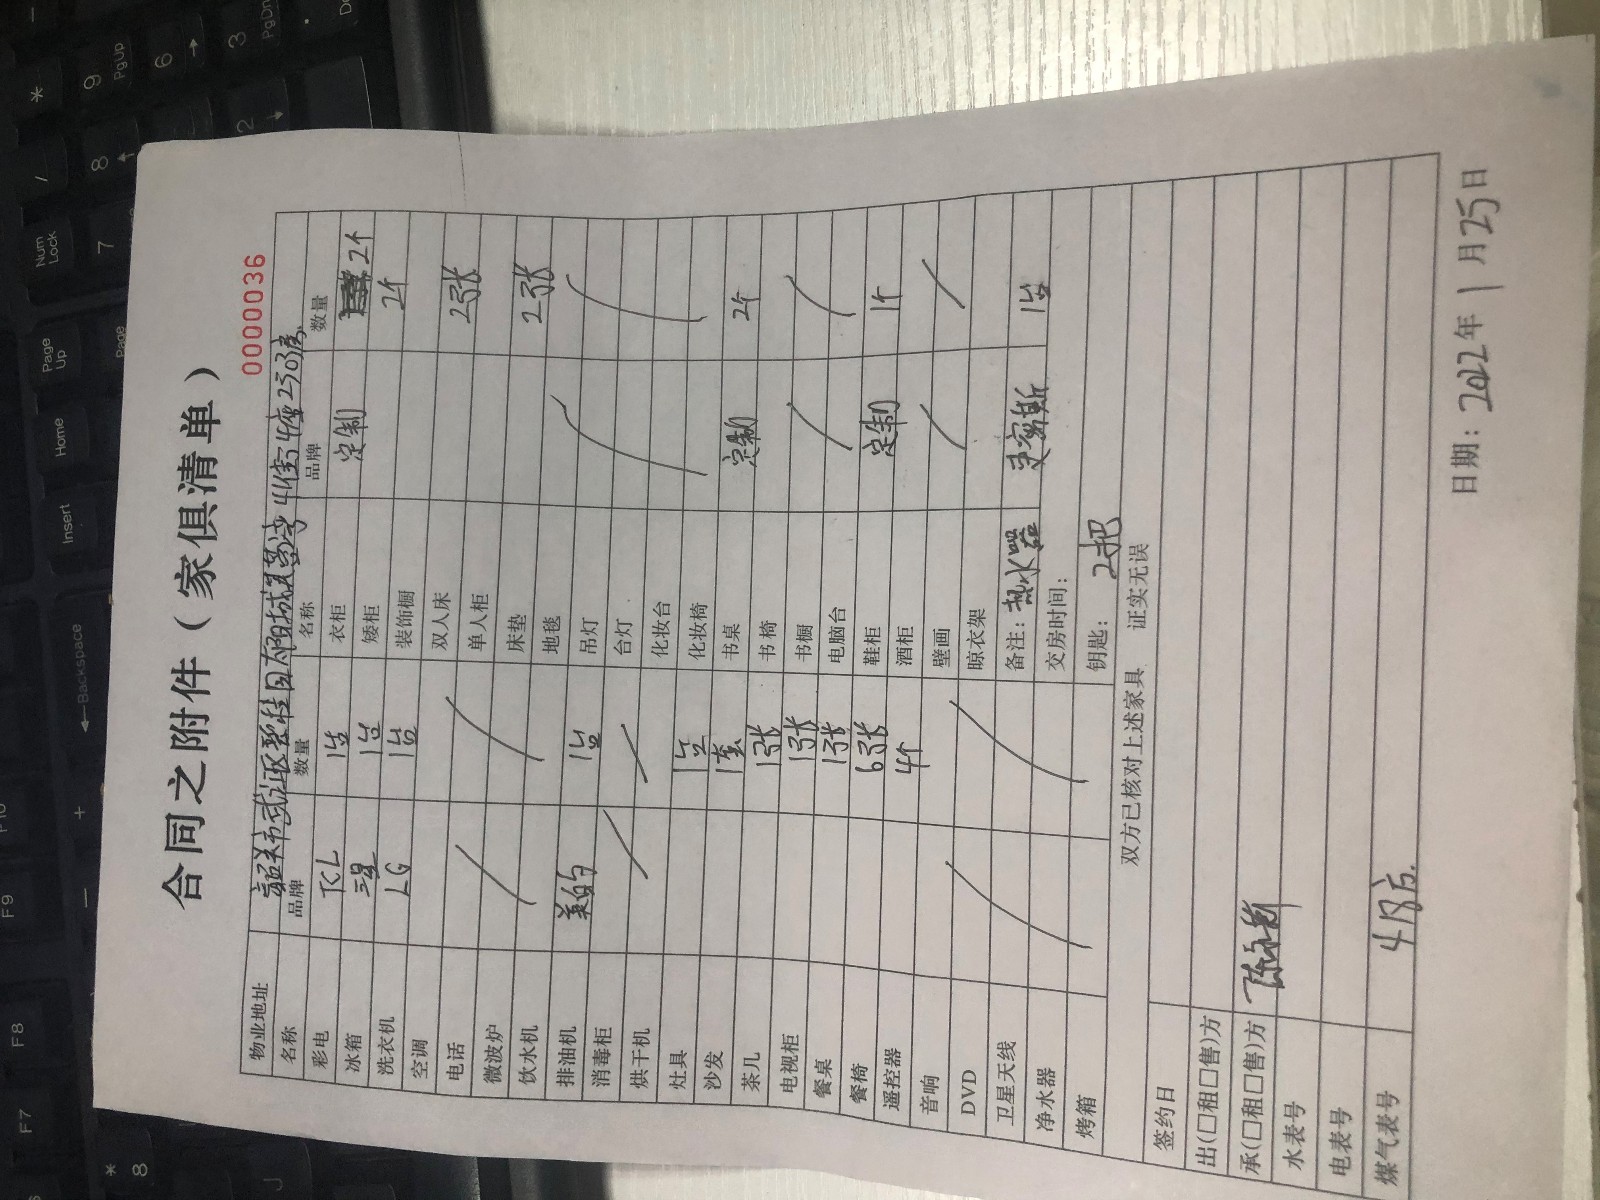 合同之附件（家俱清单）
0000036
物业地址 韶关市武江区碧桂园太阳城星荟湾41街4座2303房
名称 品牌 数量 名称 品牌 数量
彩电 TCL 1台 衣柜 定制 2个
冰箱 三星 1台 矮柜 2个
洗衣机 LG 1台 装饰橱
空调 双人床 2张
电话 单人柜
微波炉 床垫 2张
饮水机 地毯
排油机 美的 1台 吊灯
消毒柜 台灯
烘干机 化妆台
灶具 1台 化妆椅
沙发 1套 书桌 定制 2个
茶几 1张 书椅
电视柜 1张 书橱
餐桌 1张 电脑台
餐椅 6张 鞋柜 定制 1个
遥控器 4个 酒柜
音响 壁画
DVD 晾衣架
卫星天线 备注：热水器 1台
净水器 交房时间：
烤箱 钥匙： 2把
双方已核对上述家具 证实无误
签约日
出(□租□售)方
承(□租□售)方
水表号
电表号
煤气表号 418方.
日期：2022年1月25日
*
/
Num Lock
9 PgUp
8
7
6
3 PgDn
2
Page Up
Page
Home
Insert
Backspace
+
-
F9
F8
F7
*
8